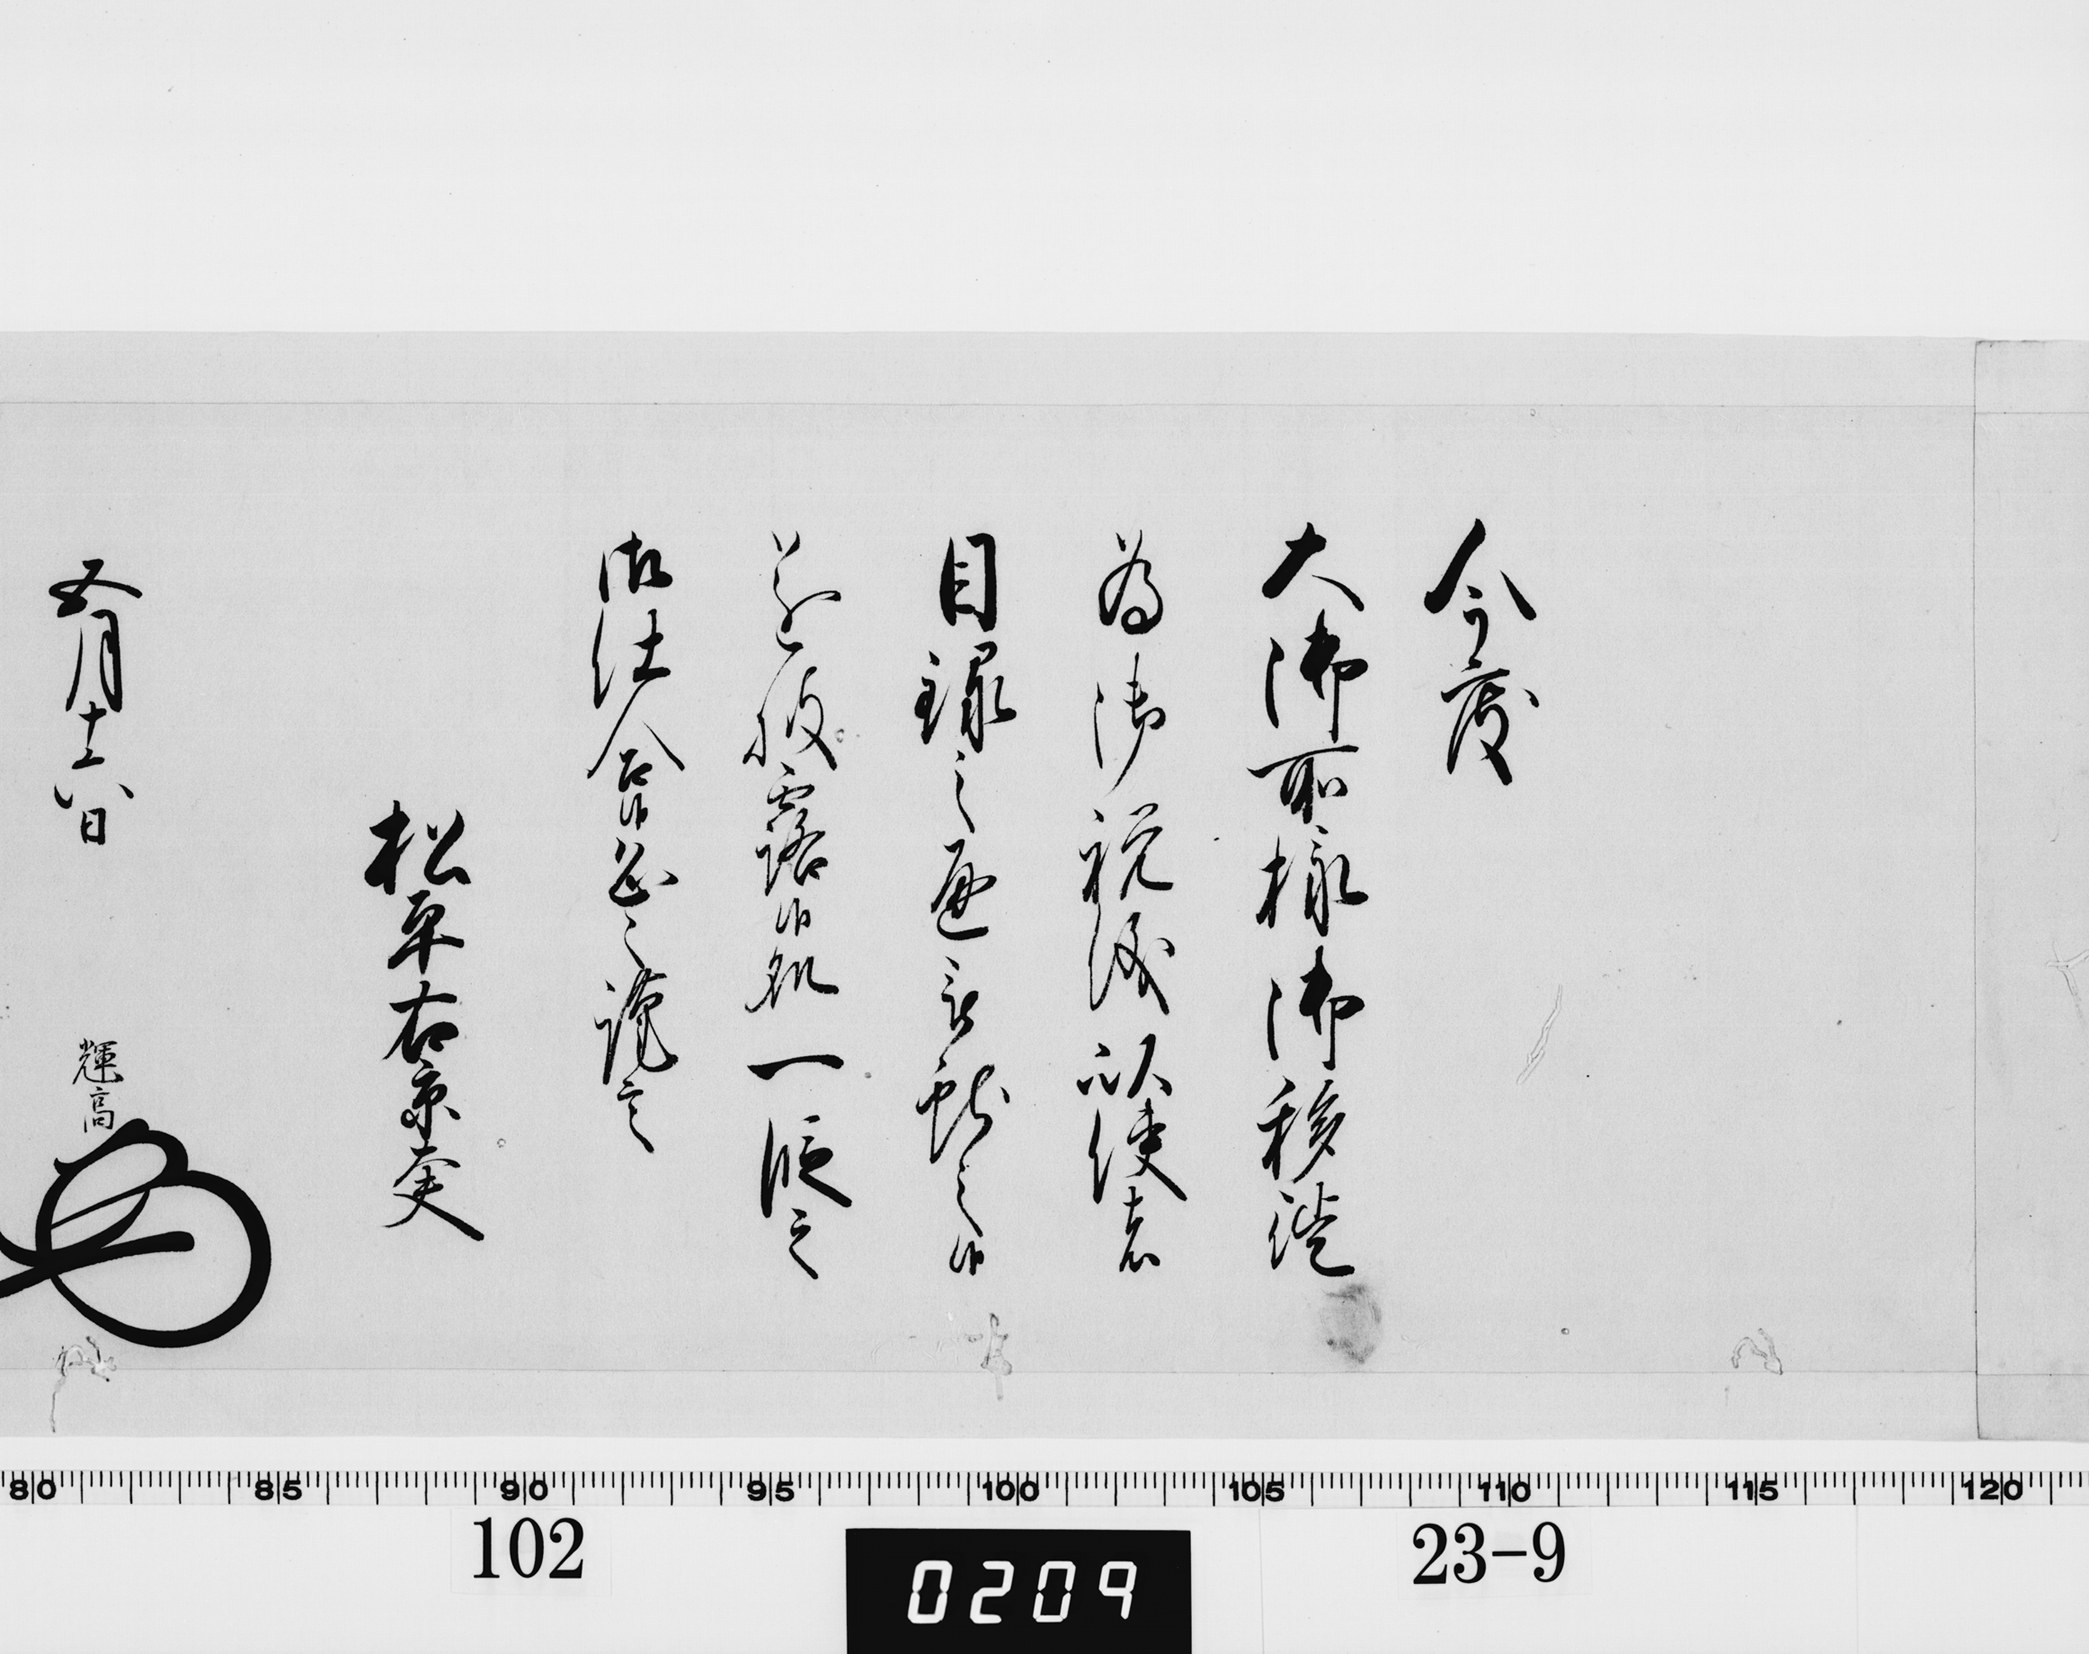 今度
大御所様御移徙
為御祝儀以使者
目録之通被献之候
遂披露候処一段之
御仕合候恐々謹言
松平右京大夫
五月十六日
輝高
80 85 90 95 100 105 110 115 120
102
0209
23-9